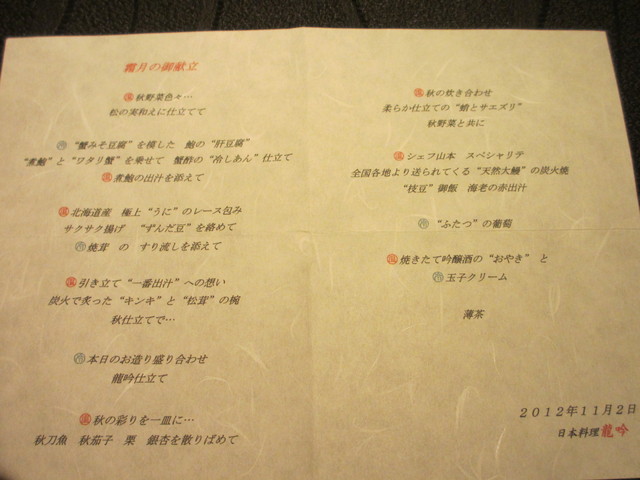 霜月の御献立
温 秋野菜色々…
松の実和えに仕立てて
冷 “蟹みそ豆腐”を模した 鮑の“肝豆腐”
“煮鮑”と“ワタリ蟹”を乗せて 蟹酢の“冷しあん”仕立て
温 煮鮑の出汁を添えて
温 北海道産 極上“うに”のレース包み
サクサク揚げ “ずんだ豆”を絡めて
冷 焼茸 の すり流しを添えて
温 引き立て“一番出汁”への想い
炭火で炙った“キンキ”と“松茸”の椀
秋仕立てで…
冷 本日のお造り盛り合わせ
龍吟仕立て
温 秋の彩りを一皿に…
秋刀魚 秋茄子 栗 銀杏を散りばめて
温 秋の炊き合わせ
柔らか仕立ての“鮹とサエズリ”
秋野菜と共に
温 シェフ山本 スペシャリテ
全国各地より送られてくる“天然大鰻”の炭火焼
“枝豆”御飯 海老の赤出汁
冷 “ふたつ”の葡萄
温 焼きたて吟醸酒の“おやき” と
冷 玉子クリーム
薄茶
2012年11月2日
日本料理 龍吟